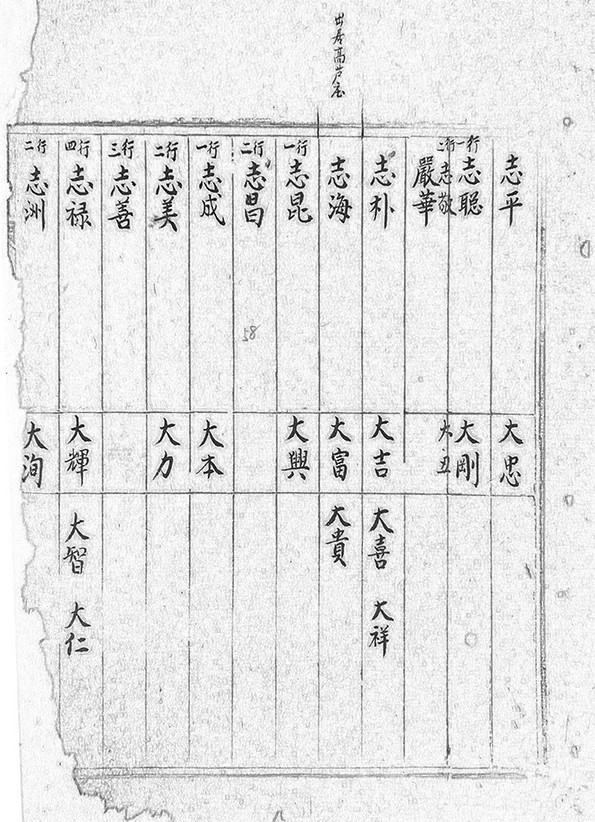 出居高芦屯
志平 大忠
一行 志聪 大刚
二行 志敬 大丑
嚴華
志朴 大吉 大喜 大祥
志海 大富 大貴
一行 志昆 大興
二行 志昌
58
一行 志成 大本
二行 志美 大力
三行 志善
四行 志禄 大輝 大智 大仁
二行 志洲 大洵